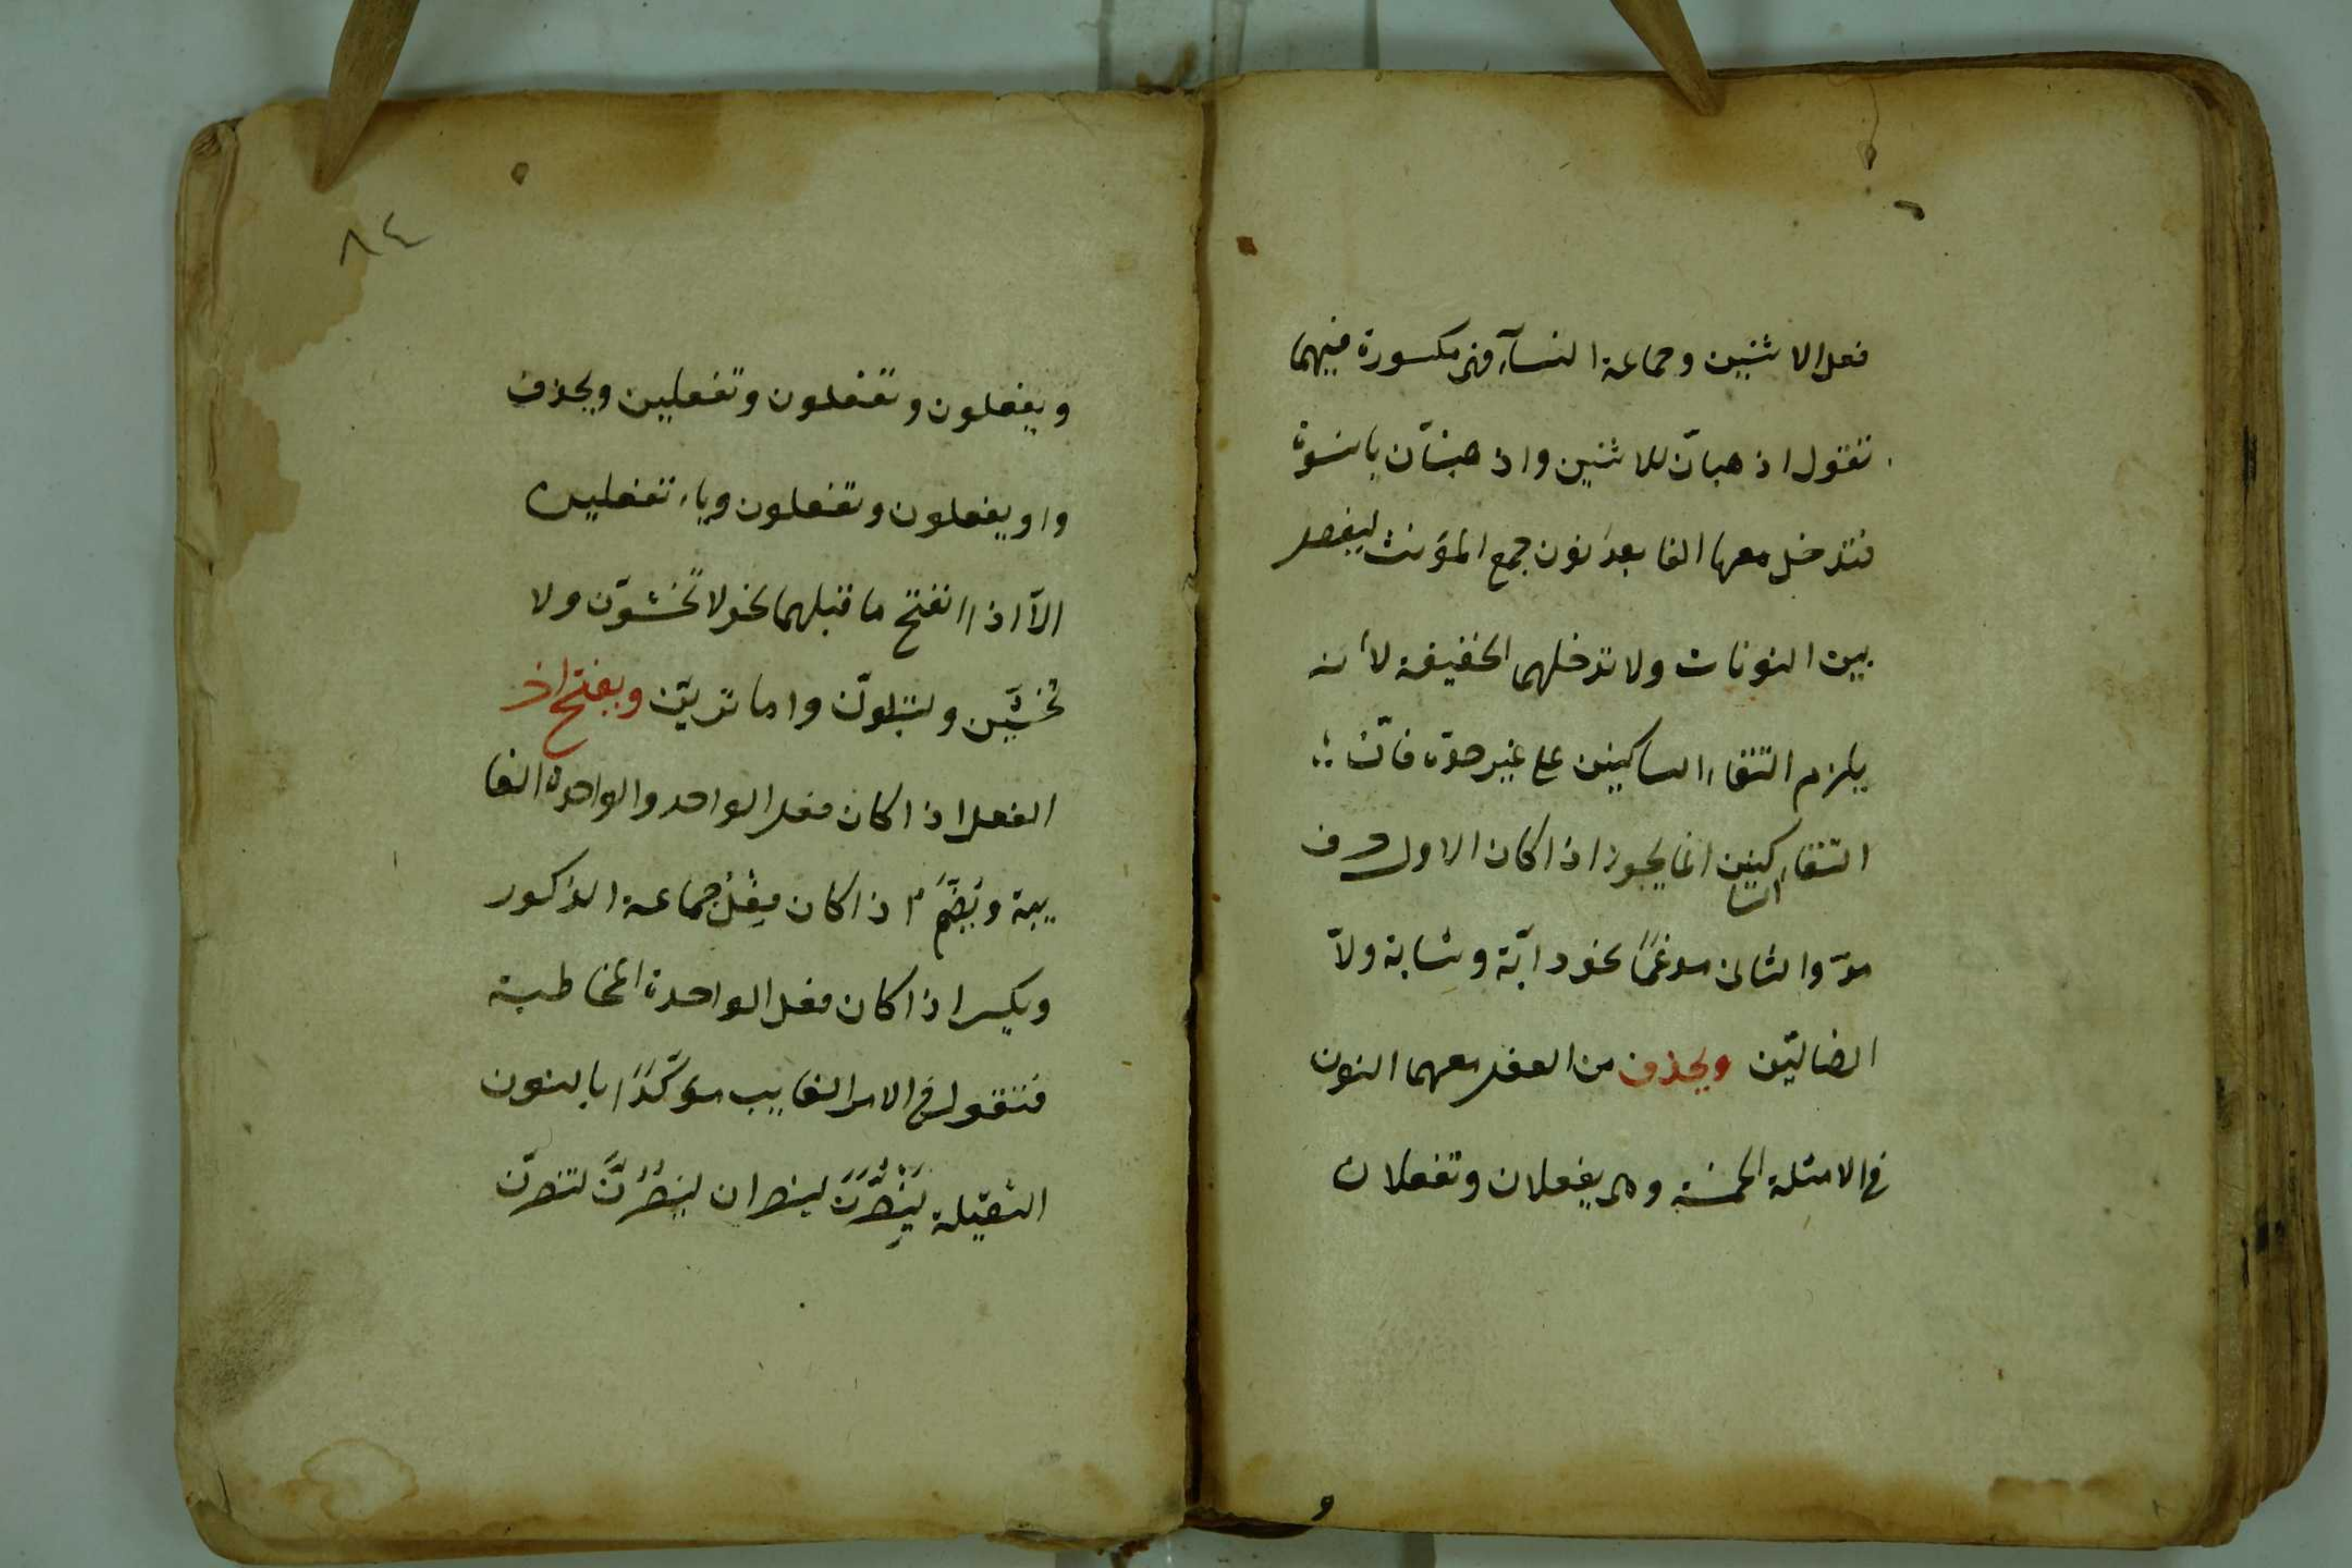 فعل الاثنين وجماعة النسآء فهى مكسورة فيهما
تقول اذهبانّ للاثنين واذهبنانّ يا نسوة
فتدخل معها الفا بعد نون جمع المؤنث ليفصل
بين النونات ولا تدخلهما الخفيفة لأنه
يلزم التقاء الساكنين على غير حده فانّ
التقاء الساكنين انما يجوز اذا كان الاول حرف
مدّ والثانى مدغمًا نحو دابّة وشابة ولا
الضالّين ويحذف من الفعل معهما النون
فى الامثلة الخمسة وهى يفعلان وتفعلان
٨٤
ويفعلون وتفعلون وتفعلين ويحذف
واو يفعلون وتفعلون وياء تفعلين
الّا اذا انفتح ما قبلهما نحو لا تخشوّن ولا
تخشيّن ولتبلونّ واما تريّن ويفتح اخر
الفعل اذا كان فعل الواحد والواحدة الغا
يبة ويُضَمّ اذا كان فعل جماعة الذكور
ويكسر اذا كان فعل الواحدة المخاطبة
فتقول فى الامر الغايب مؤكّدًا بالنون
الثقيلة لِيَنْصُرَنَّ لينصران لينصُرُنَّ لتنصرنّ